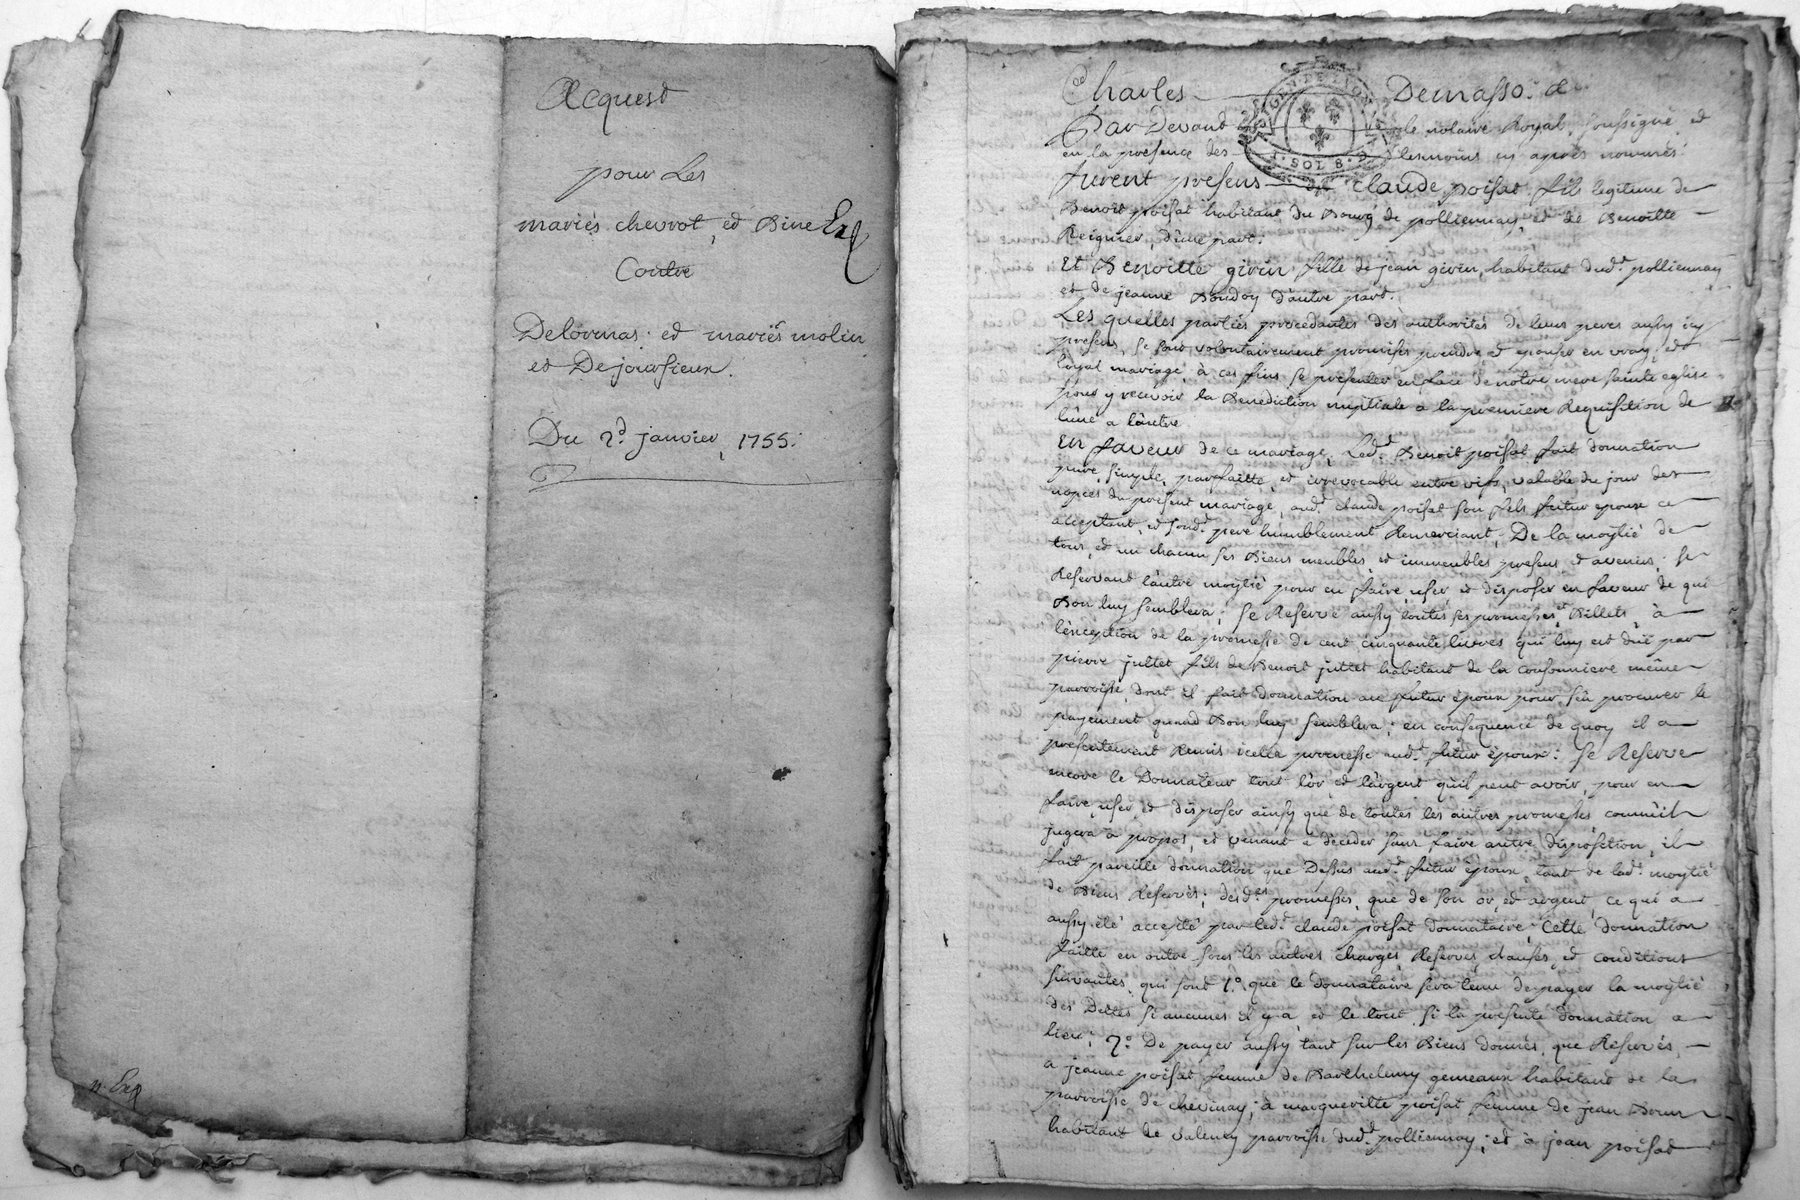 Acquest
pour Les
mariés chevrot, et Bine Exp
Contre
Delormas et mariés molin
et Dejoursieux.
Du 2d. janvier, 1755.
n. Exp
Charles Demasso. &
Par Devant le notaire Royal, soussigné, et
en la presence des tesmoins cy apres nommés
furent presens claude poisat fils legitime de
Benoit poisat habitant du Bourg de polliennay, et de Benoitte
Reignier, d'une part.
Et Benoitte givin fille de jean givin, habitant dud.t polliennay
et de jeanne Boudoy d'autre part.
Les quelles parties procedantes des authorités de leurs peres aussy icy
presens, se sont volontairement promises prendre et epouser en vray, et
loyal mariage, à ces fins se presenter en face de notre mere sainte eglise
pour y recevoir la Benediction nuptiale a la premiere Requisition de
l'une a l'autre
En faveur de ce mariage, led.t Benoit poisat fait donnation
pure, simple, parfaitte, et irrevocable entre vifs, valable du jour des
nopces du present mariage, aud.t claude poisat son fils futur epoux ce
acceptant, et sond.t pere humblement Remerciant, De la moytié de
tous, et un chacun ses Biens meubles, et immeubles presens et avenirs, se
Reservant l'autre moytié pour en faire, user, et disposer en faveur de qui
Bon luy semblera; se Reserve aussy toutes ses promesses, et Billets, à
l'exception de la promesse de cent cinquante livres qui luy est düe par
pierre jullet fils de Benoit jullet habitant de la consonniere même
parroisse, dont il fait donnation au futur époux pour s'en procurer le
payement quand Bon luy semblera; en consequence de quoy il a
presentement Remis icelle promesse aud.t futur époux: se Reserve
encore le Donnateur tout l'or, et l'argent qu'il peut avoir, pour en
faire, user, et disposer ainsy que de toutes les autres promesses comm'il
jugera a propos, et venant a déceder sans faire autre disposition, il
fait pareille donnation que Dessus aud.t futur époux, tant de lad.t moytié
de Biens Reservés, desd.es promesses, que de son or, et argent, ce qui a
aussy été accepté par led.t claude poisat donnataire; Cette donnation
faitte en outre sous les autres charges Reserves, clauses, et conditions
suivantes, qui sont 1.o que le donnataire sera tenu de payer la moytié
des Dettes si aucunes il y a, et le tout, si la presente donnation a
lieu; 2.o De payer aussy tant sur les Biens donnés, que Reservés,
a jeanne poisat femme de Barthelemy gemeaux habitans de la
parroisse de chevinay; à margueritte poisat femme de jean Brun
habitant de valency parroisse dud.t polliennay; et à jean poisat